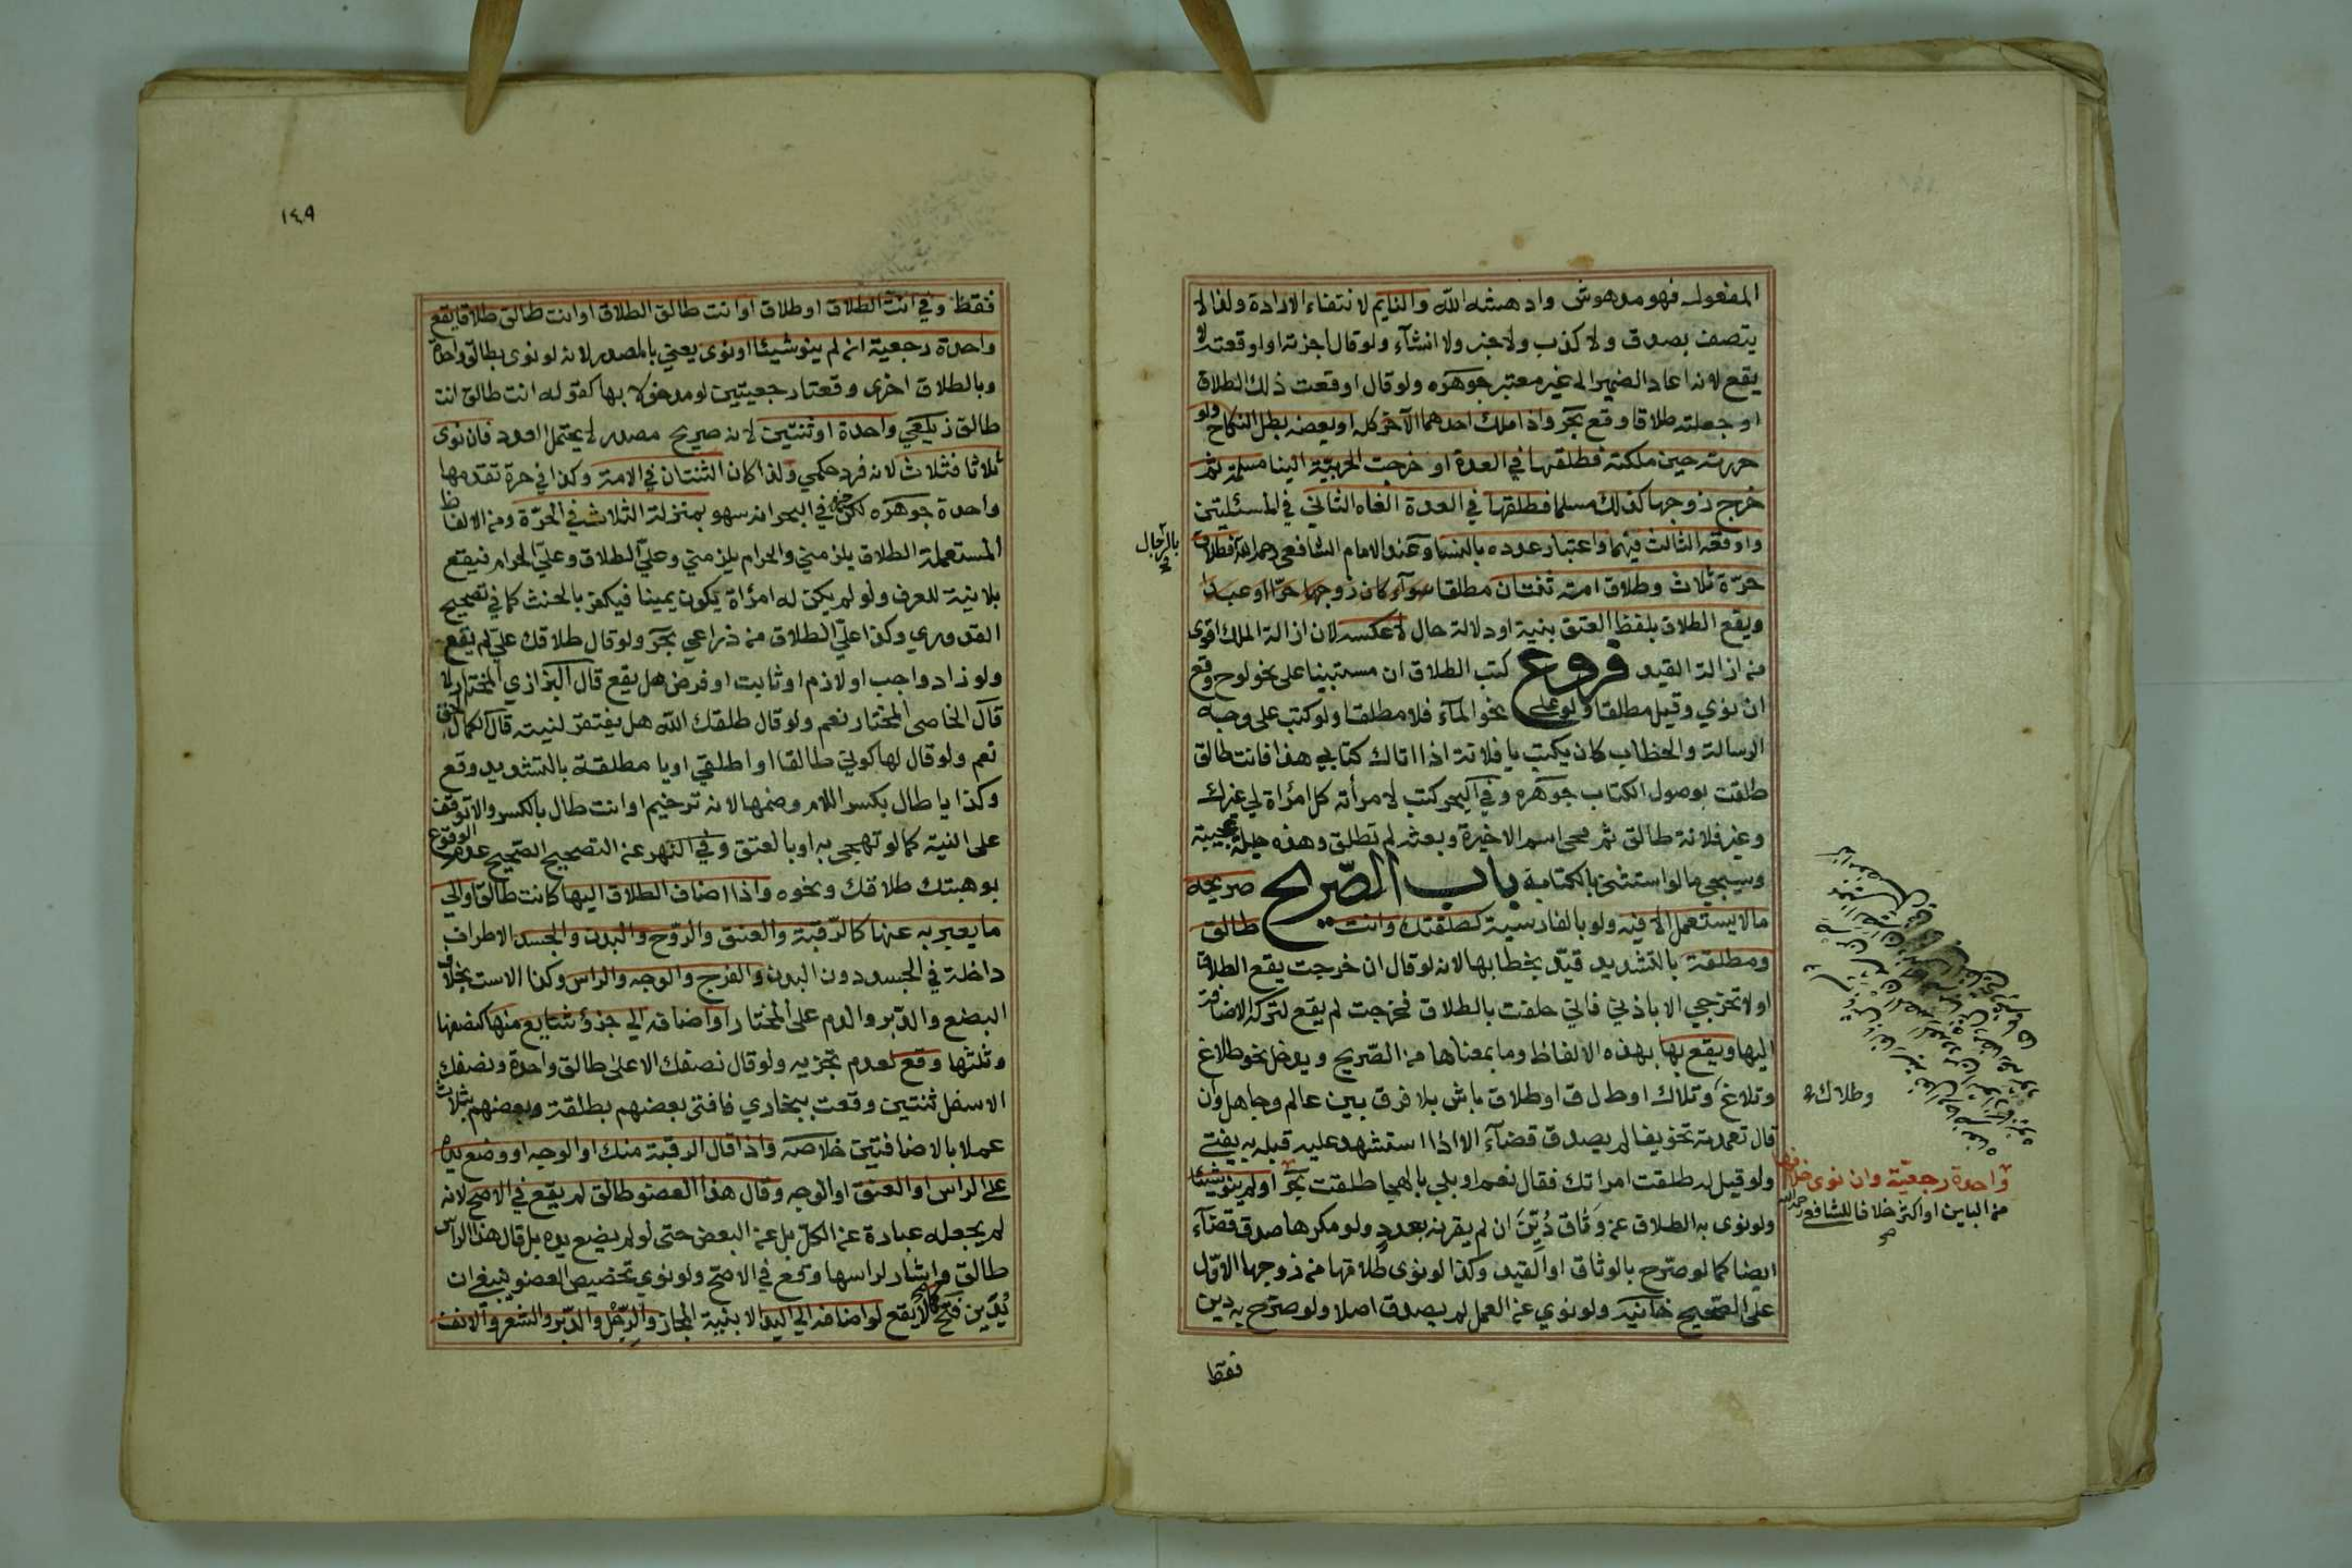 المفعول فهو مدهوش وادهشه الله والنايم لانتفاء الارادة ولذا لا
يتصف بصدق ولا كذب ولا خبر ولا انشآء ولو قال اجزته او اوقعته لا
يقع لانه اعاد الضمير الى غير معتبر جوهره ولو قال اوقعت ذلك الطلاق
او جعلته طلاقا وقع بحر واذا ملك احدهما الآخر كله او بعضه بطل النكاح ولو
حررته حين ملكته فطلقها في العدة او خرجت الحربية الينا مسلمة ثم
خرج زوجها كذلك مسلما فطلقها في العدة الغاه الثاني في المسئلتين
واوقعه الثالث فيهما واعتبار عدده بالنسا وعند الامام الشافعي رحمه الله فطلاق
بالرجال
حرّة ثلاث وطلاق امة ثنتان مطلقا سوآء كان زوجها حرّا او عبدا
ويقع الطلاق بلفظ العتق بنية او دلالة حال لا عكسه لان ازالة الملك اقوى
من ازالة القيد فروع كتب الطلاق ان مستبينا على نحو لوح وقع
ان نوي وقيل مطلقا ولو على نحو المآء فلا مطلقا ولو كتب على وجه
الرسالة والخطاب كان يكتب يا فلانة اذا اتاك كتابي هذا فانت طالق
طلقت بوصول الكتاب جوهره وفي البحر كتب لامرأته كل امرأة لي غيرك
وغير فلانة طالق ثم محى اسم الاخيرة وبعثه لم تطلق وهذه حيلة عجيبة
وسيجي ما لو استثنى بالكتابة باب الصّريح صريحه
ما لا يستعمل الا فيه ولو بالفارسية كطلقتك وانت طالق
ومطلقة بالتشديد قيّد بخطابها لانه لو قال ان خرجت يقع الطلاق
او لا تخرجي الا باذني فاني حلفت بالطلاق فخرجت لم يقع لتركه الاضافة
اليها ويقع بها بهذه الالفاظ وما بمعناها من الصّريح ويدخل نحو طلاغ
وتلاغ وتلاك او ط ل ق او طلاق باش بلا فرق بين عالم وجاهل وان
وطلاك
قال تعمدته تخويفا لم يصدق قضآء الا اذا استشهد عليه قبله به يفتي
ولو قيل له طلقت امراتك فقال نعم او بلي بالهجا طلقت بحر او لم ينو شيئا
واحدة رجعيّة وان نوى خلافها
من الباين او اكثر خلافا للشافعي رحمه الله
ولو نوى به الطلاق عن وَثاق دُيِّنَ ان لم يقرنه بعدد ولو مكرها صدق قضآء
ايضا كما لو صرّح بالوثاق او القيد وكذا لو نوى طلاقها من زوجها الاوّل
على الصّحيح خانيه ولو نوي عن العمل لم يصدق اصلا ولو صرّح به دين
فقط
١٤٩
فقط وفي انت الطلاق او طلاق او انت طالق الطلاق او انت طالق طلاقا يقع
واحدة رجعية ان لم ينو شيئا او نوى يعني بالمصدر لانه لو نوى بطالق واحدة
وبالطلاق اخرى وقعتا رجعيتين لو مدخولا بها كقوله انت طالق انت
طالق زيلعي واحدة او ثنتين لانه صريح مصدر لا يحتمل العدد فان نوى
ثلاثا فثلاث لانه فرد حكمي ولذا كان الثنتان في الامة وكذا في حرة تقدمها
واحدة جوهره لكن جزم في البحر انه سهو بمنزلة الثلاث في الحرّة ومن الالفاظ
المستعملة الطلاق يلزمني والحرام يلزمني وعليّ الطلاق وعليّ الحرام فيقع
بلا نية للعرف ولو لم يكن له امرأة يكون يمينا فيكفر بالحنث كما في تصحيح
القدوري وكذا عليّ الطلاق من ذراعي بحر ولو قال طلاقك عليّ لم يقع
ولو زاد واجب او لازم او ثابت او فرض هل يقع قال البزازي المختار لا
قال الخاصى المختار نعم ولو قال طلقك الله هل يفتقر لنية قال الكمال الحق
نعم ولو قال لها كوني طالقا او اطلقي او يا مطلقة بالتشديد وقع
وكذا يا طال بكسر اللام وضمها لانه ترخيم او انت طال بالكسر والا توقف
على النية كما لو تهجى به او بالعتق وفي النهر عن التصحيح الصّحيح عدم الوقوع
بوهبتك طلاقك ونحوه واذا اضاف الطلاق اليها كانت طالق او الي
ما يعبر به عنها كالرّقبة والعنق والرّوح والبدن والجسد الاطراف
داخلة في الجسد دون البدن والفرج والوجه والراس وكذا الاست بخلاف
البضع والدّبر والدم على المختار او اضافه الي جزؤ شايع منها كنصفها
وثلثها وقع لعدم تجزيه ولو قال نصفك الاعلى طالق واحدة ونصفك
الاسفل ثنتين وقعت ببخاري فافتى بعضهم بطلقة وبعضهم بثلاث
عملا بالاضافتين خلاصه واذا قال الرقبة منك او الوجه او وضع يده
على الراس او العنق او الوجه وقال هذا العضو طالق لم يقع في الاصح لانه
لم يجعله عبارة عن الكلّ بل عن البعض حتى لو لم يضع يده بل قال هذا الراس
طالق واشار لراسها وقع في الاصحّ ولو نوي تخصيص العضو ينبغي ان
يُديّن فتح كما لا يقع لو اضافه الي اليد الا بنية المجاز والرِّجل والدّبر والشعر والانف